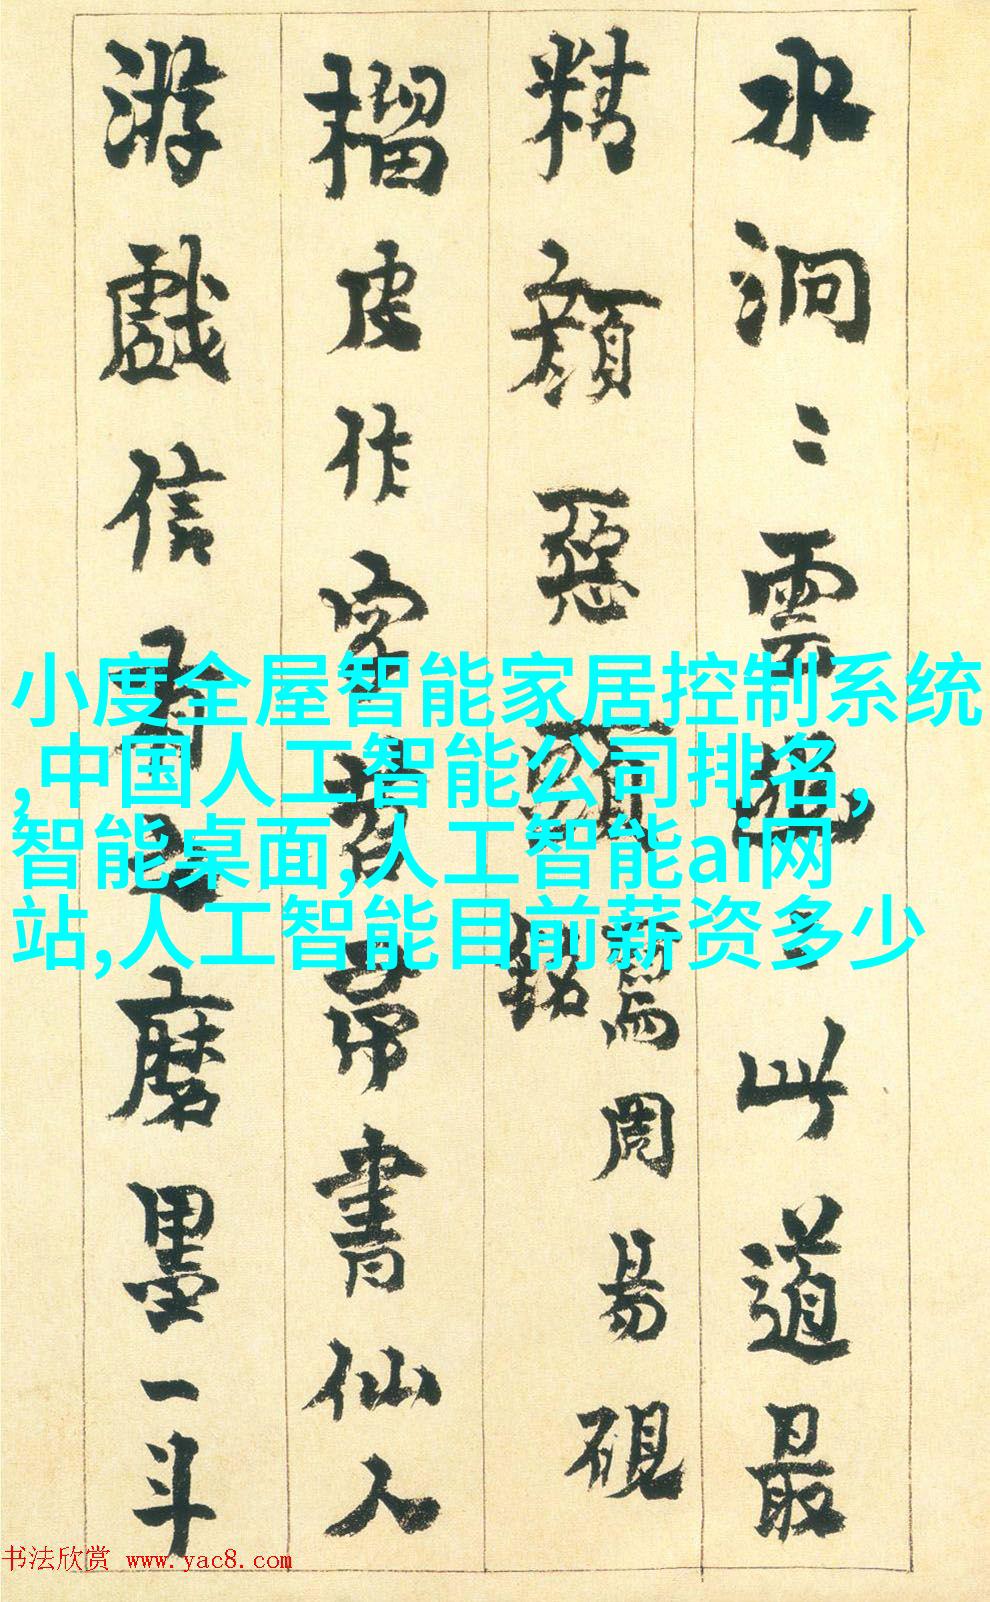 水洞〻雲〻此道最
精顏惡頭寫周易硯
銘
榴皮作字苕帚書仙人
游戲信有之磨墨一斗
小度全屋智能家居控制系统
,中国人工智能公司排名,
智能桌面,人工智能ai网
站,人工智能目前薪资多少
书法欣赏 www.yac8.com